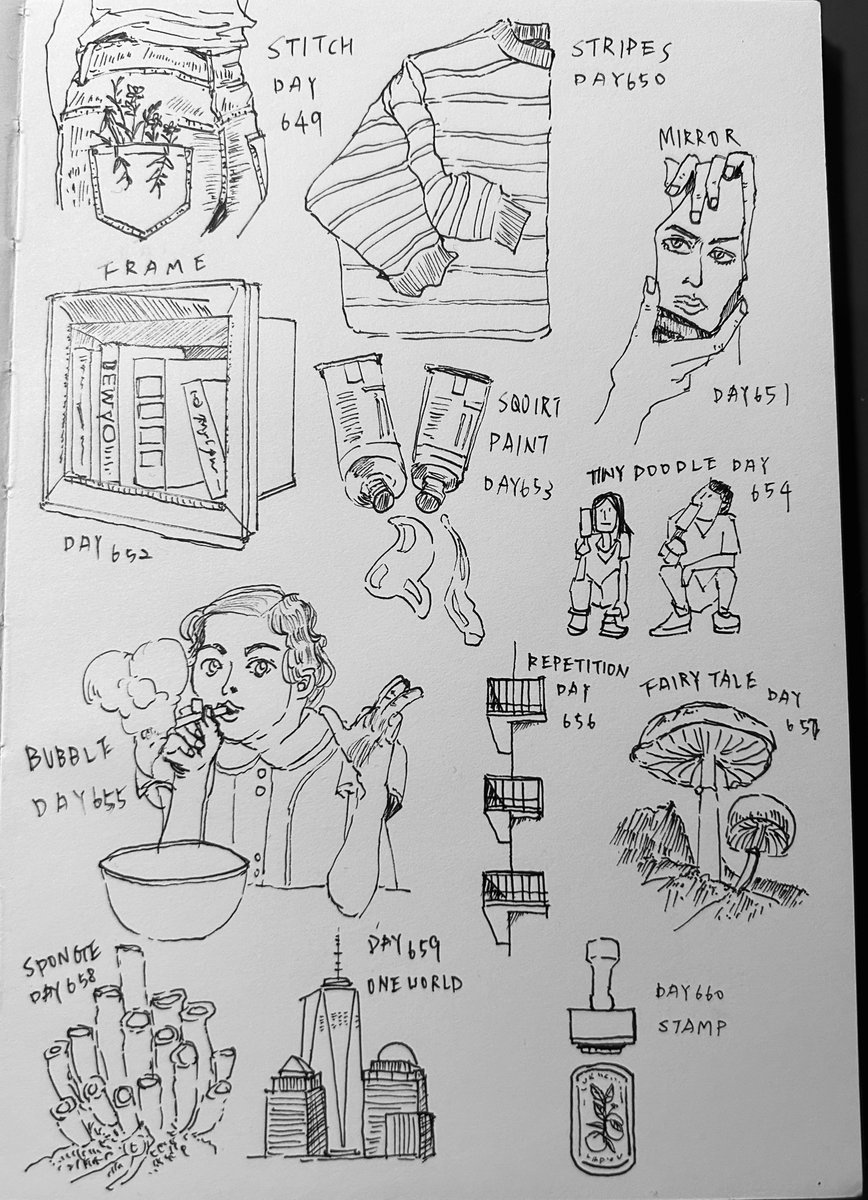 STITCH
DAY
649
STRIPES
DAY650
MIRROR
DAY651
FRAME
DAY 652
SQUIRT
PAINT
DAY653
TINY DOODLE DAY
654
BUBBLE
DAY655
REPETITION
DAY
656
FAIRY TALE DAY
657
SPONGE
DAY658
DAY659
ONE WORLD
DAY660
STAMP